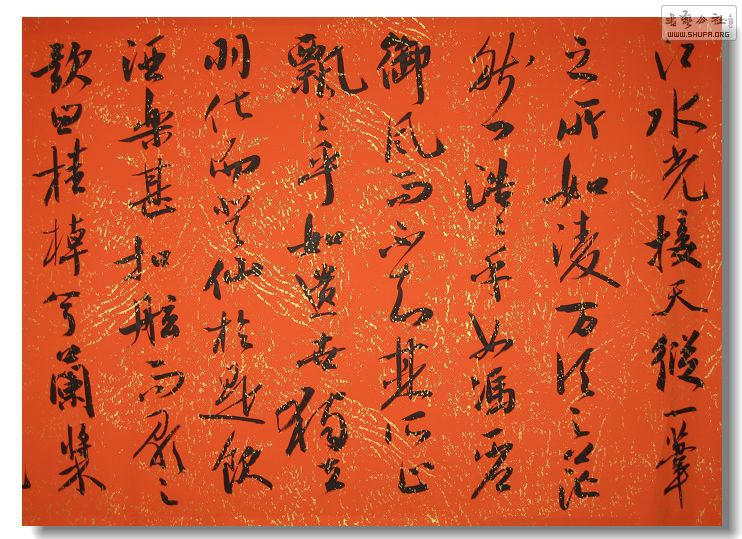 江水光接天縱一葦
之所如淩万頃之茫
然浩々乎如馮虛
御風而不知其所止
飄々乎如遺世獨立
羽化而登仙於是飲
酒樂甚扣舷而歌之
歌曰桂棹兮蘭槳
書藝公社
WWW.SHUFA.ORG